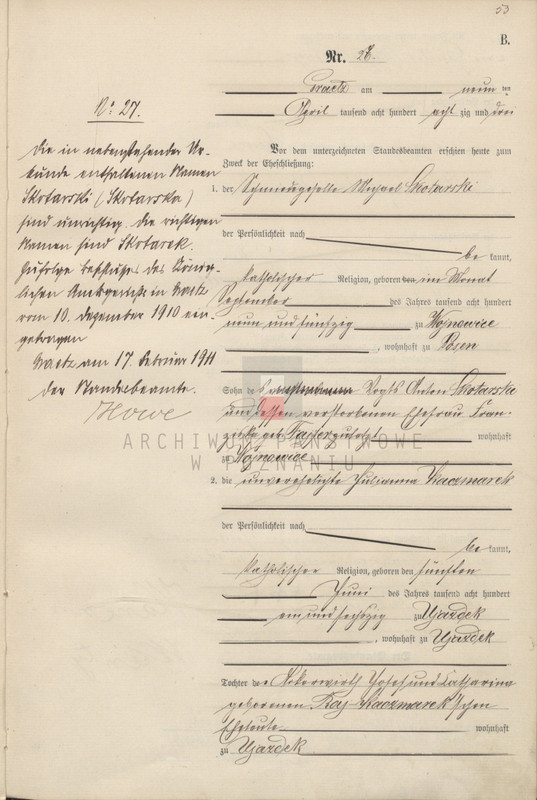 53
B.
Nr. 28.
Graetz am neun ten
April tausend acht hundert acht zig und drei
Vor dem unterzeichneten Standesbeamten erschien heute zum
Zweck der Eheschließung:
1. der Schmiedegeselle Michael Skotarski
der Persönlichkeit nach
be kannt,
katholischer Religion, geboren den im Monat
September des Jahres tausend acht hundert
neun und fünfzig zu Wojnowice
, wohnhaft zu Posen
Sohn des Vogts Anton Skotarski
und dessen verstorbenen Ehefrau Fran-
ziska geb. zuletzt wohnhaft
zu Wojnowice
2. die unverehelichte Julianna Kaczmarek
der Persönlichkeit nach
be kannt,
katholischer Religion, geboren den fünften
Juni des Jahres tausend acht hundert
ein und sechszig zu Ujazdek
, wohnhaft zu Ujazdek
Tochter der Ackerwirth Josef und Catharina
geborenen Kaczmarek'schen
Eheleute wohnhaft
zu Ujazdek
No 27.
Die in nebenstehender Ur-
kunde enthaltenen Namen
Skotarski (Skotarska)
sind unrichtig. Die richtigen
Namen sind Skotarek.
Zufolge Beschlusses des König-
lichen Amtsgerichts in Graetz
vom 10. Dezember 1910 ein-
getragen
Graetz am 17. Februar 1911
Der Standesbeamte.
ARCHIWUM PAŃSTWOWE
W POZNANIU